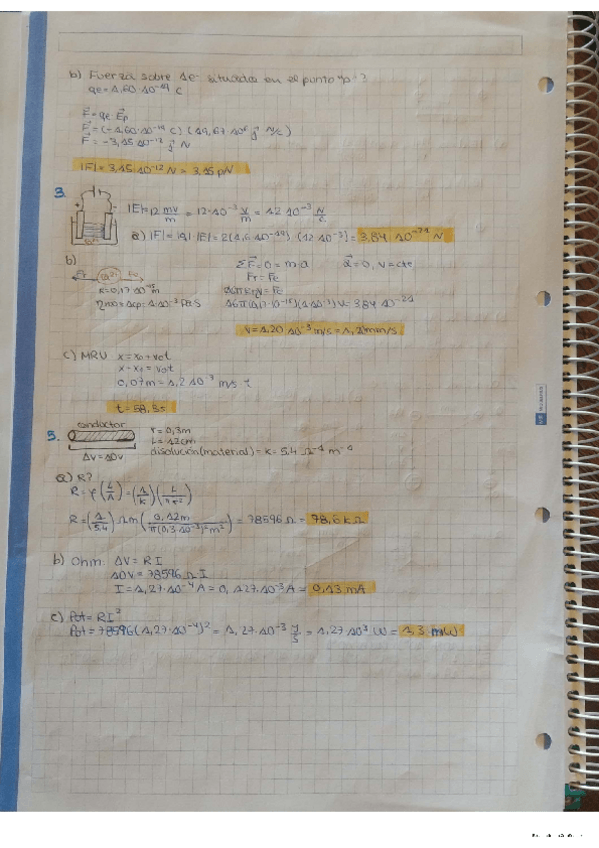 b) Fuerza sobre 1e⁻ situados en el punto "p"?
qe = 1,60·10⁻¹⁹ C
F⃗ = qe·E⃗p
F⃗ = (-1,60·10⁻¹⁹ C) (19,67·10⁶ j⃗ N/C)
F⃗ = -3,15·10⁻¹² j⃗ N
|F| = 3,15·10⁻¹² N = 3,15 pN
3.
|E| = 12 mv/m = 12·10⁻³ V/m = 12·10⁻³ N/C
a) |F| = |q|·|E| = 2(1,6·10⁻¹⁹)·(12·10⁻³) = 3,84·10⁻²¹ N
b) ΣF⃗ = 0 = m·a a⃗ = 0, v = cte
Fr Fe Fr = Fe
R = 0,17·10⁻⁹ m 6πRηv = Fe
1·10⁻³ Pa·S v = 3,84·10⁻²¹
v = 1,20·10⁻³ m/s = 1,2 mm/s
c) MRU x = x₀ + v₀t
x - x₀ = v₀t
0,07m = 1,2·10⁻³ m/s t
t = 58,3s
5.
conductor r = 0,3m
L = 12cm
disolución (material) = k = 5,4 Ω⁻¹ m⁻¹
ΔV = 10V
a) R?
R = ρ(L/A) = (1/k)(L/πr²)
R = (1/5,4) Ωm (0,12m/π(0,3·10⁻³)²m²) = 78596 Ω = 78,6 kΩ
b) Ohm: ΔV = R I
10V = 78596 Ω I
I = 1,27·10⁻⁴ A = 0,127·10⁻³ A = 0,13 mA
c) Pot = RI²
Pot = 78596(1,27·10⁻⁴)² = 1,27·10⁻³ J/s = 1,27·10³ W = 1,3 mW